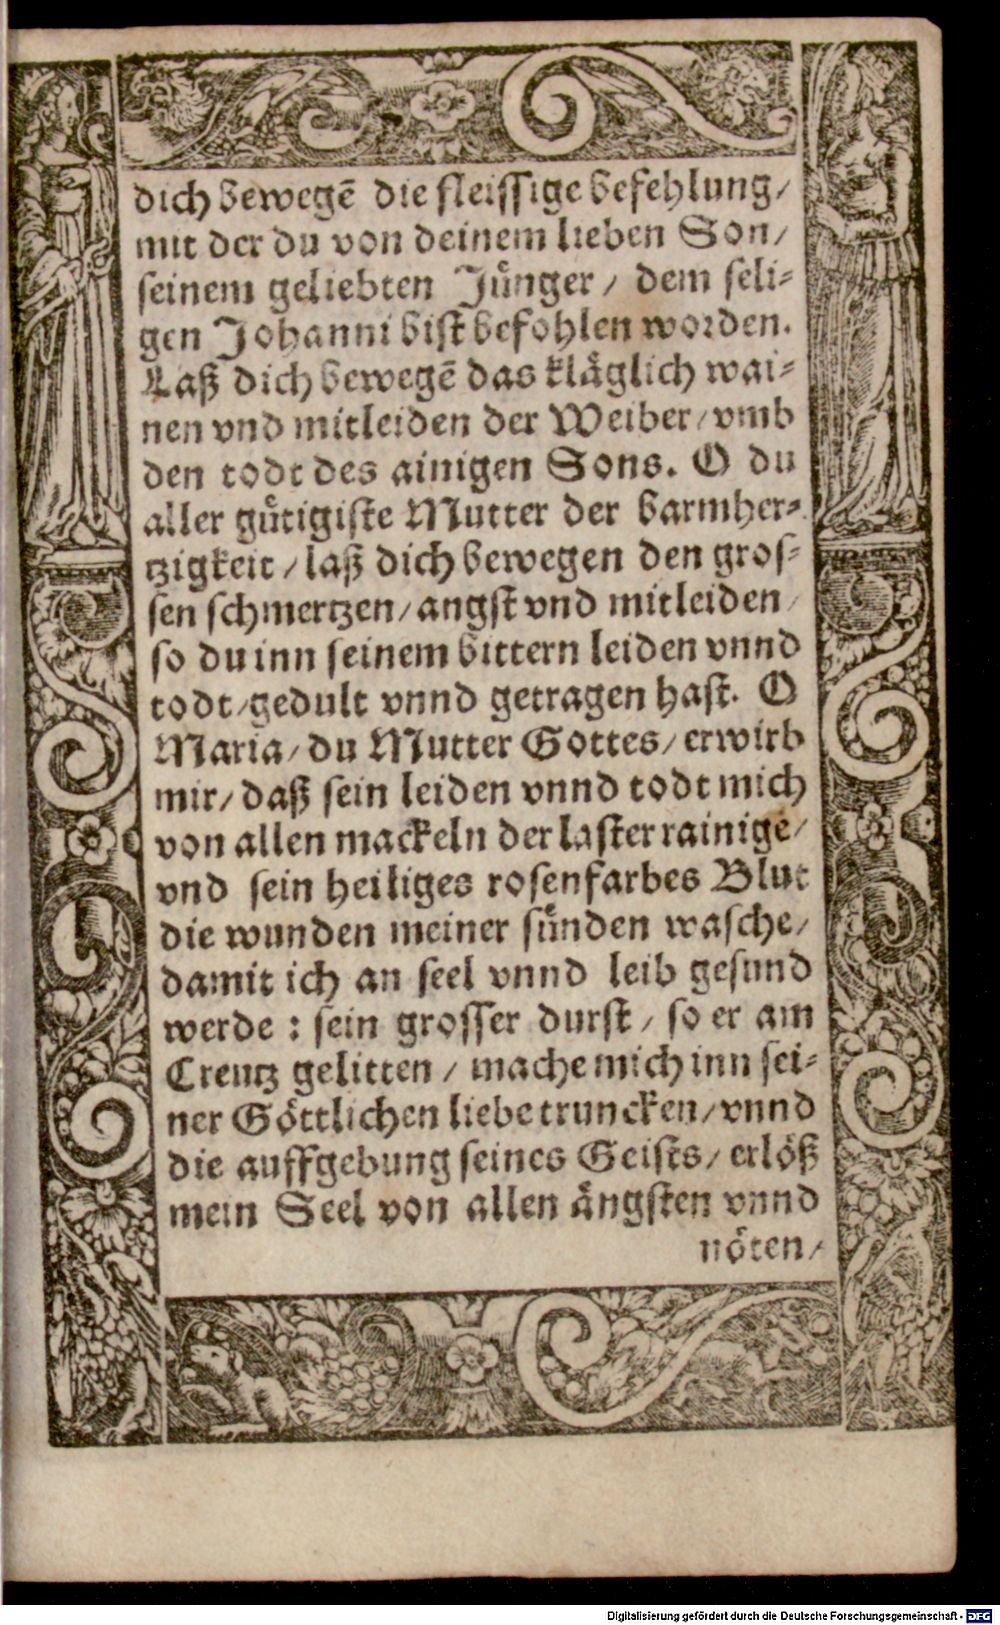 dich bewegē die fleissige befehlung/
mit der du von deinem lieben Son/
seinem geliebten Jünger / dem seli-
gen Johanni bist befohlen worden.
Laß dich bewegē das kläglich wai-
nen vnd mitleiden der Weiber/vmb
den todt des ainigen Sons. O du
aller gütigiste Mutter der barmher-
tzigkeit / laß dich bewegen den gros-
sen schmertzen/angst vnd mitleiden/
so du inn seinem bittern leiden vnnd
todt/gedult vnnd getragen hast. O
Maria/du Mutter Gottes/erwirb
mir/daß sein leiden vnnd todt mich
von allen mackeln der laster rainige/
vnd sein heiliges rosenfarbes Blut
die wunden meiner sünden wasche/
damit ich an seel vnnd leib gesund
werde : sein grosser durst / so er am
Creutz gelitten / mache mich inn sei-
ner Göttlichen liebe truncken/vnnd
die auffgebung seines Geists/erlöß
mein Seel von allen ängsten vnnd
nöten/
Digitalisierung gefördert durch die Deutsche Forschungsgemeinschaft - DFG